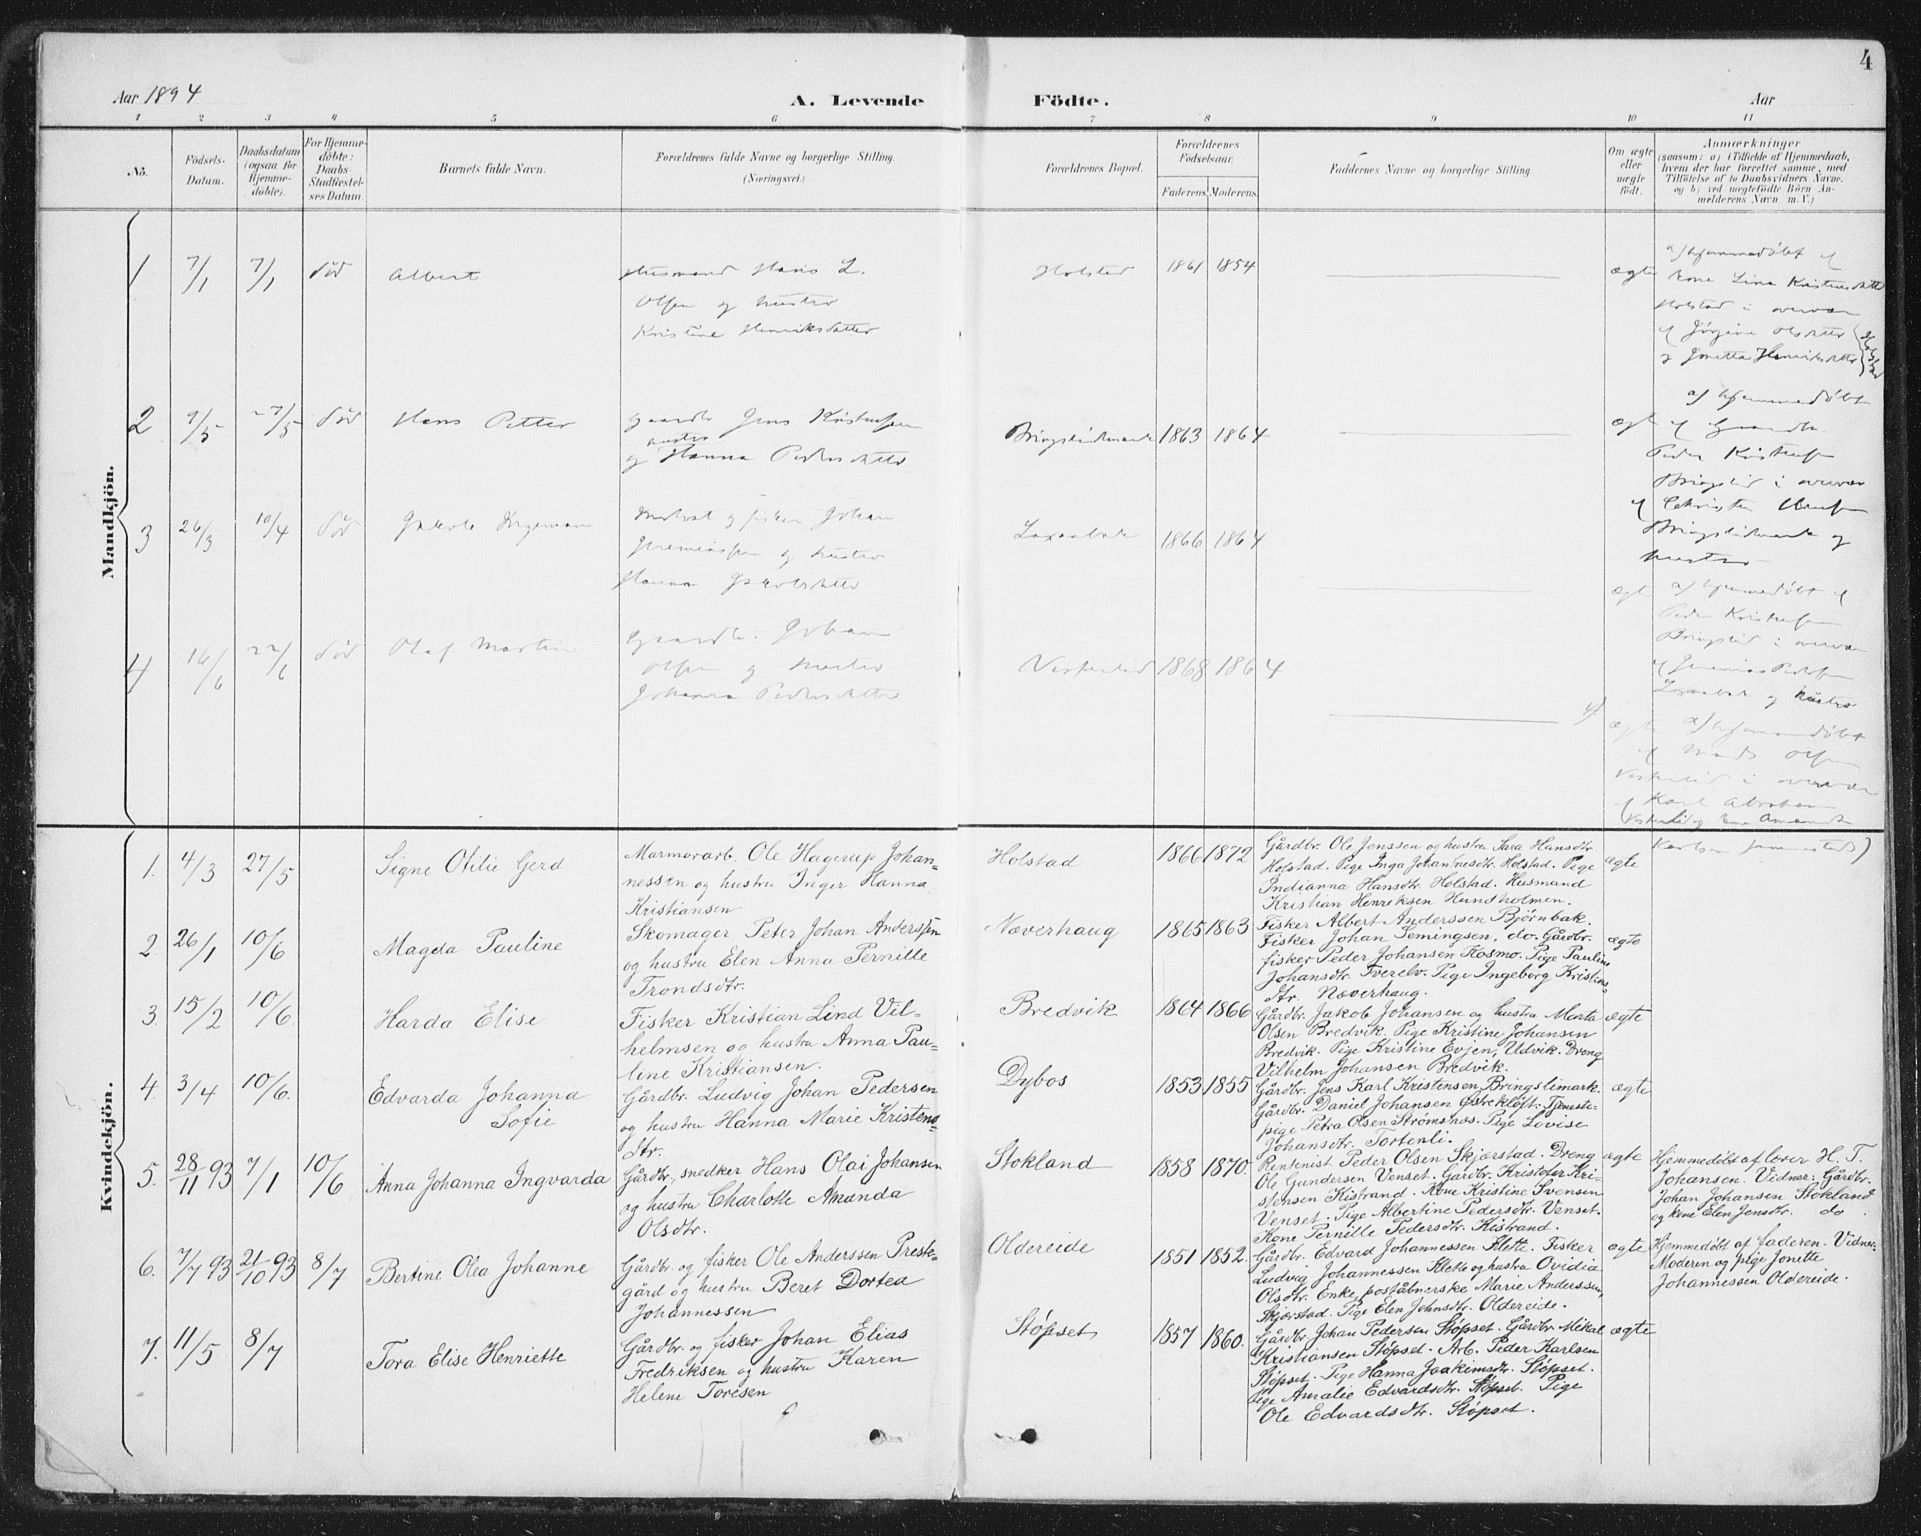 4
Aar 1894
A. Levende
Födte.
Aar
1 2 3 4 5 6 7 8 9 10 11
No.
Födsels-
Datum.
Daabsdatum
(ogsaa for
Hjemme-
döbte).
For Hjemme-
döbte:
Daabs-
Stadfæstel-
ses Datum.
Barnets fulde Navn.
Forældrenes fulde Navne og borgerlige Stilling.
(Næringsvei.)
Forældrenes Bopæl.
Forældrenes
Födselsaar.
Faderens Moderens
Faddernes Navne og borgerlige Stilling.
Om ægte
eller
uægte
födt.
Anmærkninger
(saasom: a) i Tilfælde af Hjemmedaab,
hvem der har forrettet samme, med
Tilföielse af to Daabsvidners Navne.
og b) ved uægtefödte Börn An-
melderens Navn m.V.)
Mandkjön.
1 7/1 7/1 död Albert
Husmand Hans L.
Olsen og hustru
Kristine Henriksdatter
Holstad 1861 1854 ægte
a/ hjemmedöbt af
kone Lina
Holstad i overvær
af Jörgine Olsdatter
og Jonetta Henriksdatter
2 9/5 27/5 död Hans Petter
Gaardbr Jens Kristensen
hustru
og Hanna Pedersdatter
Bringslidmark 1863 1864 ægte
a/ hjemmedöbt
af Gaardbr.
Peder Kristensen
Bringslid i overvær
af Christen
Bringslidmark og
hustru
3 26/3 10/4 död Jakob Ingeman
og fisker Johan
Jeremiassen og hustru
Hanna Jakobsdatter
Laxaabak 1866 1864 ægte
a/ hjemmedöbt af
Peder Kristensen
Bringslid i overvær
af Jeremias
Laxaabak og hustru
4 16/6 22/6 död Olaf Martin
Gaardbr. Johan
Olsen og hustru
Johanna Pedersdatter
Vesterlid 1868 1864 ægte
a/ hjemmedöbt
af Mads Olsen
Vesterlid i overvær
af Karl Abraham
Vesterlid og kone Amanda
Karlsen
Kvindekjön.
1. 4/3 27/5 Signe Otilie Gerd
Marmorarb. Ole Hagerup Johan-
nessen og hustru Inger Hanna
Kristiansen
Holstad 1866 1872
Gårdbr. Ole Jenssen og hustru Sara Hansdtr.
Holstad. Pige Inga Johannesdtr. Holstad. Pige
Indianna Hansdtr. Holstad. Husmand
Kristian Henriksen Hundholmen.
ægte
2. 26/1 10/6 Magda Pauline
Skomager Peter Johan Anderssen
og hustru Elen Anna Pernille
Trondsdtr.
Næverhaug 1865 1863
Fisker Albert Anderssen Bjørnbak.
Fisker Johan Temingsen, do. Gårdbr.
fisker Peder Johansen Kosmo. Pige Pauline
Johansdtr. Tverelv. Pige Ingeborg Kristens-
dtr. Næverhaug.
ægte
3. 15/2 10/6 Harda Elise
Fisker Kristian Lind Vil-
helmsen og hustru Anna Pau-
line Kristiansen.
Bredvik 1864 1866
Gårdbr. Jakob Johansen og hustru Marta
Olsen Bredvik. Pige Kristine Johansen
Bredvik. Pige Kristine Evjen, Udvik. Dreng
Vilhelm Johansen Bredvik.
ægte
4. 3/4 10/6 Edvarda Johanna
Sofie
Gårdbr. Ludvig Johan Pedersen
og hustru Hanna Marie Kristens-
dtr.
Dybos 1853 1855
Gårdbr. Jens Karl Kristensen Bringslimark.
Gårdbr. Daniel Johansen Østrekløft. Tjeneste-
pige Petra Olsen Strømsnes. Pige Lovise
Johansdtr. Tortenli.
ægte
5. 28/11 93 7/1 10/6 Anna Johanna Ingvarda
Gårdbr., snedker Hans Olai Johansen
og hustru Charlotte Amanda
Olsdtr.
Stokland 1858 1870.
Rentenist Peder Olsen Skjærstad. Dreng
Ole Gundersen Venset. Gårdbr. Kristofer Kri-
stensen Kistrand. Kone Kristine Svensen
Venset. Pige Albertine Pedersdtr. Venset.
Kone Pernille Pedersdtr. Kistrand.
ægte
Hjemmedøbt af lærer H. T.
Johansen. Vidner: Gårdbr.
Johan Johansen Stokland
og kone Elen Jensdtr. do.
6. 7/7 93 21/10 93 8/7 Bertine Olea Johanne
Gårdbr. og fisker Ole Anderssen Preste-
gård og hustru Beret Dortea
Johannessen
Oldereide 1851 1852.
Gårdbr. Edvard Johannessen Slette. Fisker
Ludvig Johannessen Slette og hustru Ovidia
Olsdtr. Enke, poståbnerske Marie Anderssen,
Skjærstad. Pige Elen Johnsdtr. Oldereide.
ægte
Hjemmedøbt af faderen. Vidner:
Moderen og pige Jonette
Johannessen Oldereide.
7. 11/5 8/7 Tora Elise Henriette
Gårdbr. og fisker Johan Elias
Fredriksen og hustru Karen
Helene Toresen
Støpset 1857 1860.
Gårdbr. Johan Pedersen Støpset. Gårdbr. Mikal
Kristiansen Støpset. Arb. Peder Karlsen
Støpset. Pige Hanna Joakimsdtr. Støpset.
Pige Amalie Edvardsdtr. Støpset. Pige
Ole Edvardsdtr. Støpset.
ægte